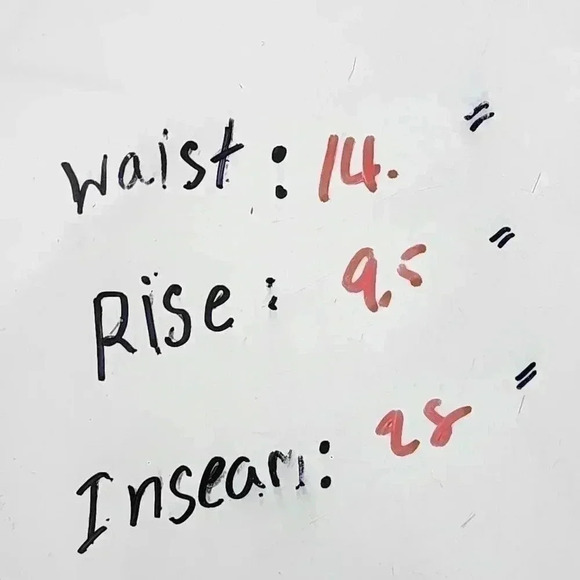 Waist: 14. "
Rise: 9.5 "
Inseam: 28 "